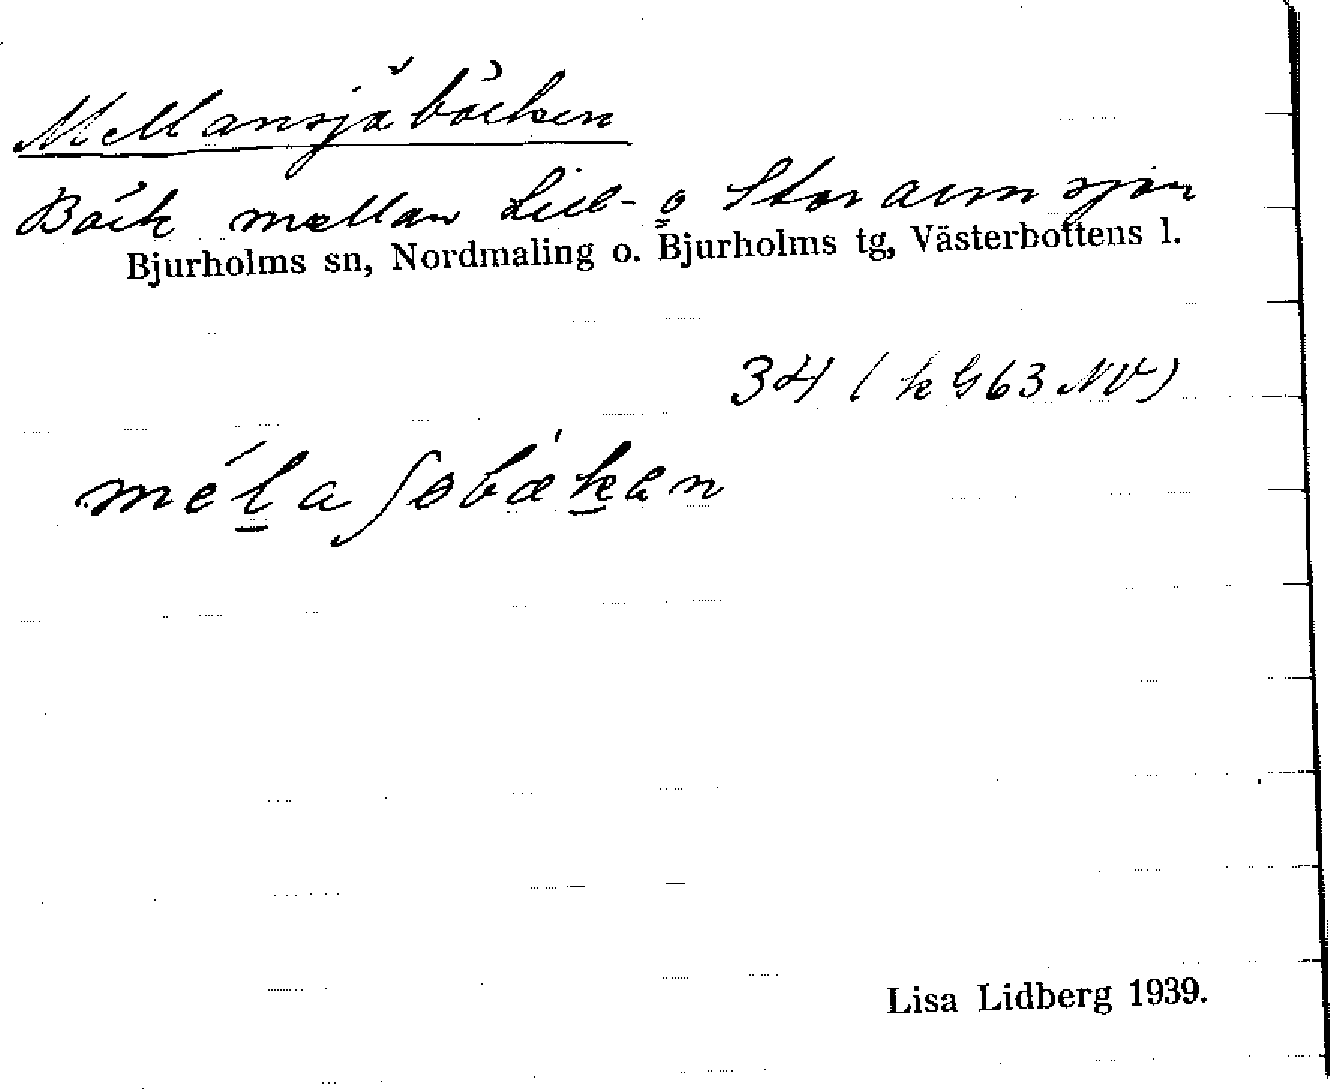 Mellansjöbäcken
Bäck mellan Lill- o Stor armsjön
Bjurholms sn, Nordmaling o. Bjurholms tg, Västerbottens l.
34 (k G63 NV)
mélaʃobækan
Lisa Lidberg 1939.